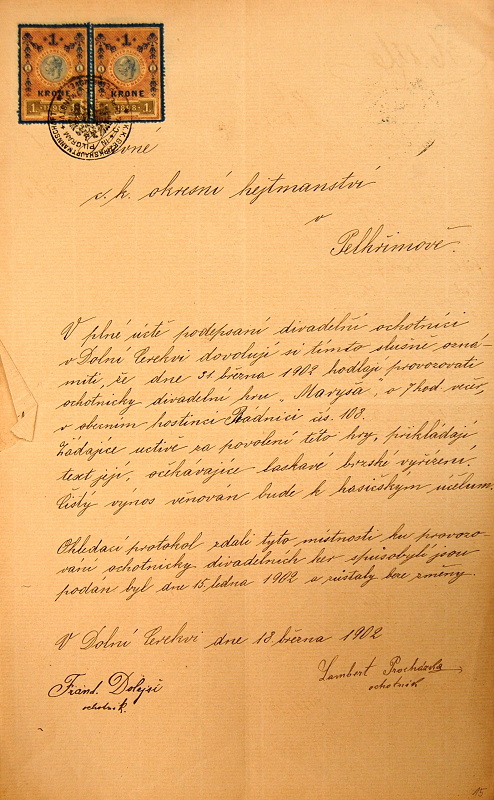 1 1
KRONE KRONE
1 1898 1
c. k. okresní hejtmanství
v
Pelhřimově.
V plné úctě podepsaní divadelní ochotníci
v Dolní Cerekvi dovolují si tímto slušně ozná-
miti, že dne 31. března 1902 hodlají provozovati
ochotnicky divadelní hru „Maryša", o 7 hod. večer,
v obecním hostinci Rádnici čís. 108.
Žádajíce uctivě za povolení této hry, překládají
text její, očekávajíce laskavé brzské vyřízení.
Čistý výnos věnován bude k hasičským účelům.
Ohledací protokol zdali tyto místnosti ku provozo-
vání ochotnicky divadelních her spůsobylí jsou
podán byl dne 15. ledna 1902 a zůstaly beze změny.
V Dolní Cerekvi dne 18. března 1902
Lambert Procházka
ochotník
Frant. Dolejší
ochotník.
15